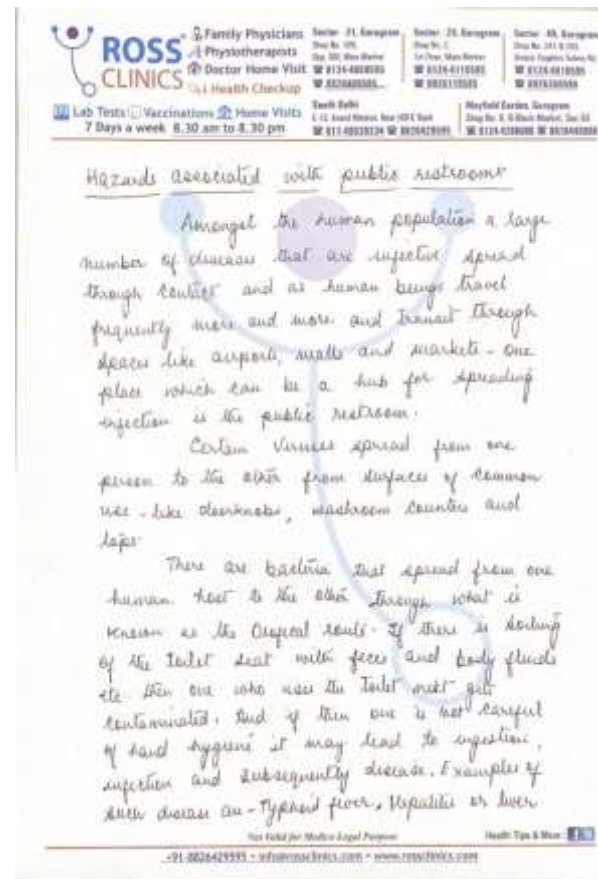 ROSS
CLINICS
Family Physicians
Physiotherapists
Doctor Home Visit
Health Checkup
Lab Tests Vaccinations Home Visits
7 Days a week 8.30 am to 8.30 pm
Sector 21, Gurugram
South Delhi
Mayfield Garden, Gurugram
Hazards associated with public restrooms
Amongst the human population a large
number of diseases that are infective spread
through contact and as human beings travel
frequently more and more and transit through
spaces like airports, malls and markets - one
place which can be a hub for spreading
infection is the public restroom.
Certain viruses spread from one
person to the other from surfaces of common
use - like doorknobs, washroom counters and
taps.
There are bacteria that spread from one
human host to the other through what is
known as the route. If there is soiling
of the toilet seat with feces and body fluids
etc. then one who uses the toilet next gets
contaminated. And if then one is not careful
of hand hygiene it may lead to ingestion,
infection and subsequently disease. Examples of
such disease are - Typhoid fever, Hepatitis or liver
Not Valid for Medico Legal Purpose
Health Tips & More
+91-8826429595 • info@rossclinics.com • www.rossclinics.com